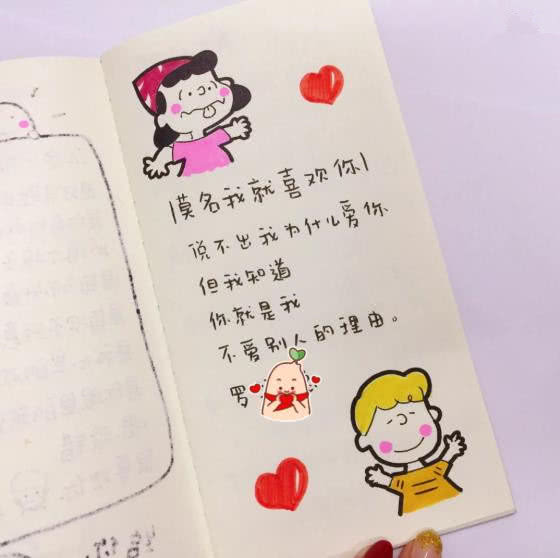 莫名我就喜欢你!
说不出我为什么爱你
但我知道
你就是我
不爱别人的理由。
罗